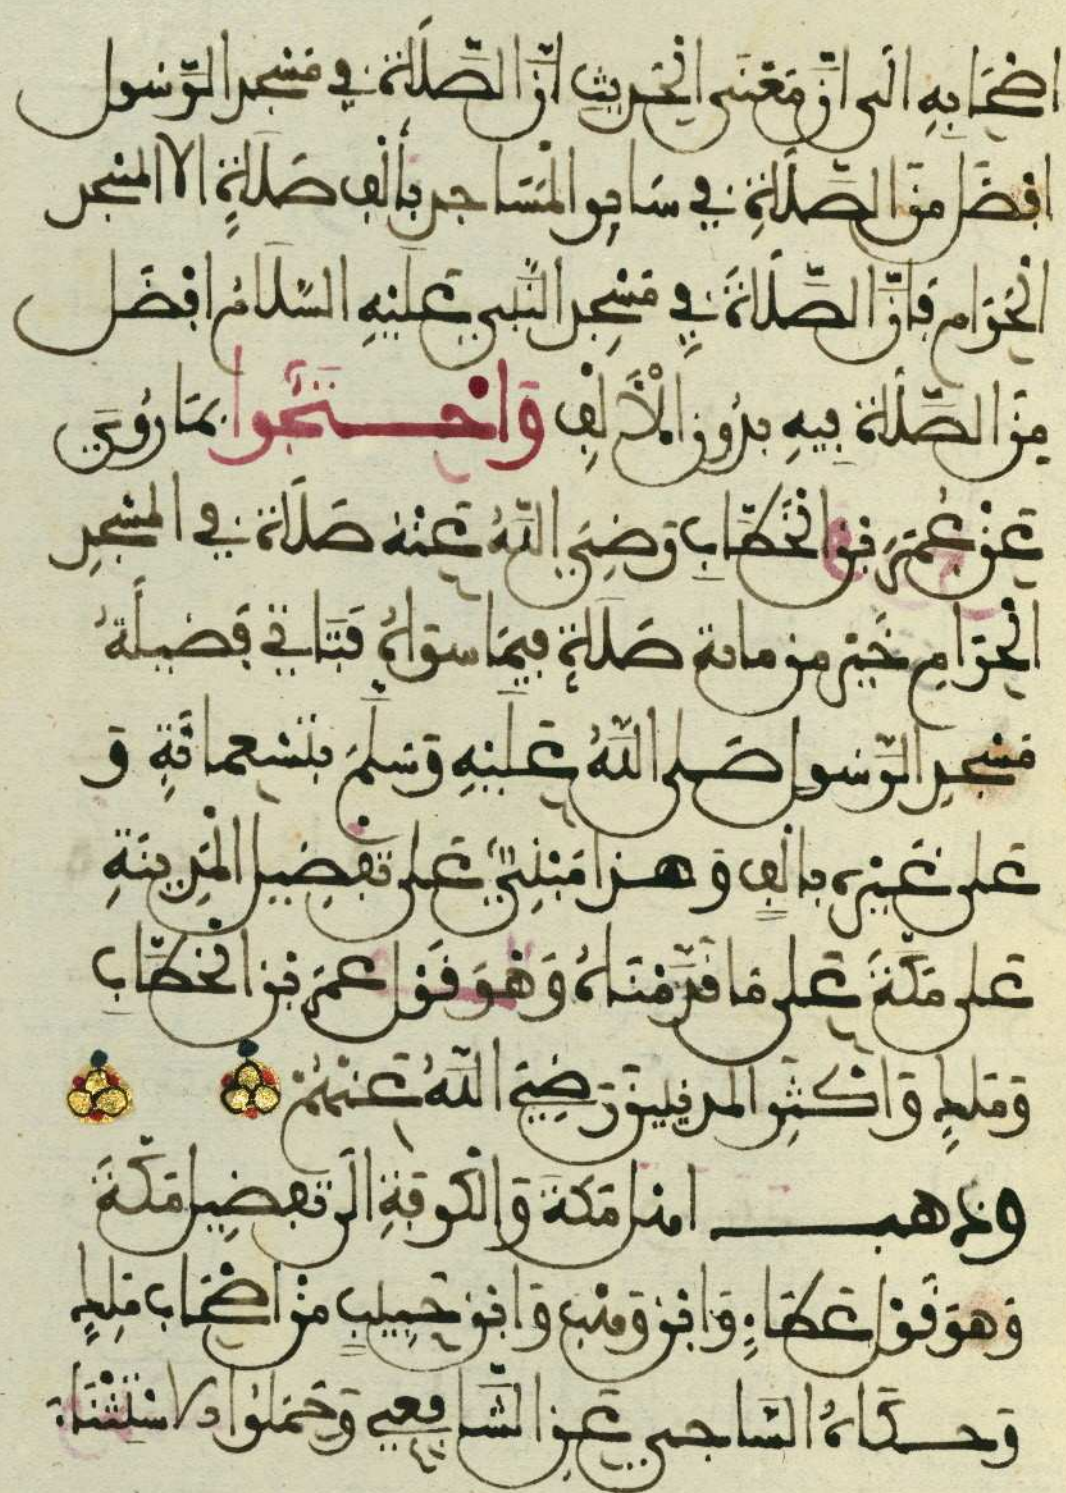 اصْحَابِهِ الَى انَّ مَعْنَى الْحَدِيثِ انَّ الصَّلَاةَ فِي مَسْجِدِ الرَّسُول
افْضَل مِنَ الصَّلَاةِ فِي سَايِرِ الْمَسَاجِدِ بِأَلْفِ صَلَاةٍ الا المسْجِد
الْحَرَامِ فَإِنَّ الصَّلَاةَ فِي مَسْجِدِ النَّبِيِّ عَلَيْهِ السَّلَامُ افْضَل
مِنَ الصَّلَاةِ فِيهِ بِدُونِ الْأَلْفِ وَاحْتَجُّوا بِمَا رُوِيَ
عَنْ عُمَرَ بْنِ الْخَطَّابِ رَضِيَ اللَّهُ عَنْهُ صَلَاة فِي المَسْجِدِ
الْحَرَامِ خَيْر من مائة صَلَاةٍ فِيمَا سِوَاهُ فَتَاتِي فَضِيلَةُ
مَسْجِدِ الرَّسُولِ صَلَّى اللَّهُ عَلَيْهِ وَسَلَّمَ بِتِسْعِمِائَةٍ وَ
عَلَى غَيْرِهِ بِالْفٍ وَهذَا مَبْنِيٌّ عَلَى تَفْضِيلِ الْمَدِينَةِ
عَلَى مَكَّةَ عَلَى مَا قَدَّمْنَاهُ وَهْوَ قَوْل عمَرَ بْن الْخطَّابِ
وَمَلِكٍ وَاكْثَرِ المَدنِيِّينَ رَضِيَ اللَّهُ عَنْهُمْ
وذهب اهْل مَكَّةَ وَالْكُوفَةِ الَى تَفْضِيلِ مَكَّةَ
وَهوَ قَوْل عَطَاءٍ وَابْن وَهْبٍ وَابْن حَبِيبٍ مِنْ اصْحَاب مَلِكٍ
وَحكَاهُ السَّاجِي عَنِ الشَّافِعِي وَحَمَلُوا الاسْتِثْنَاءَ